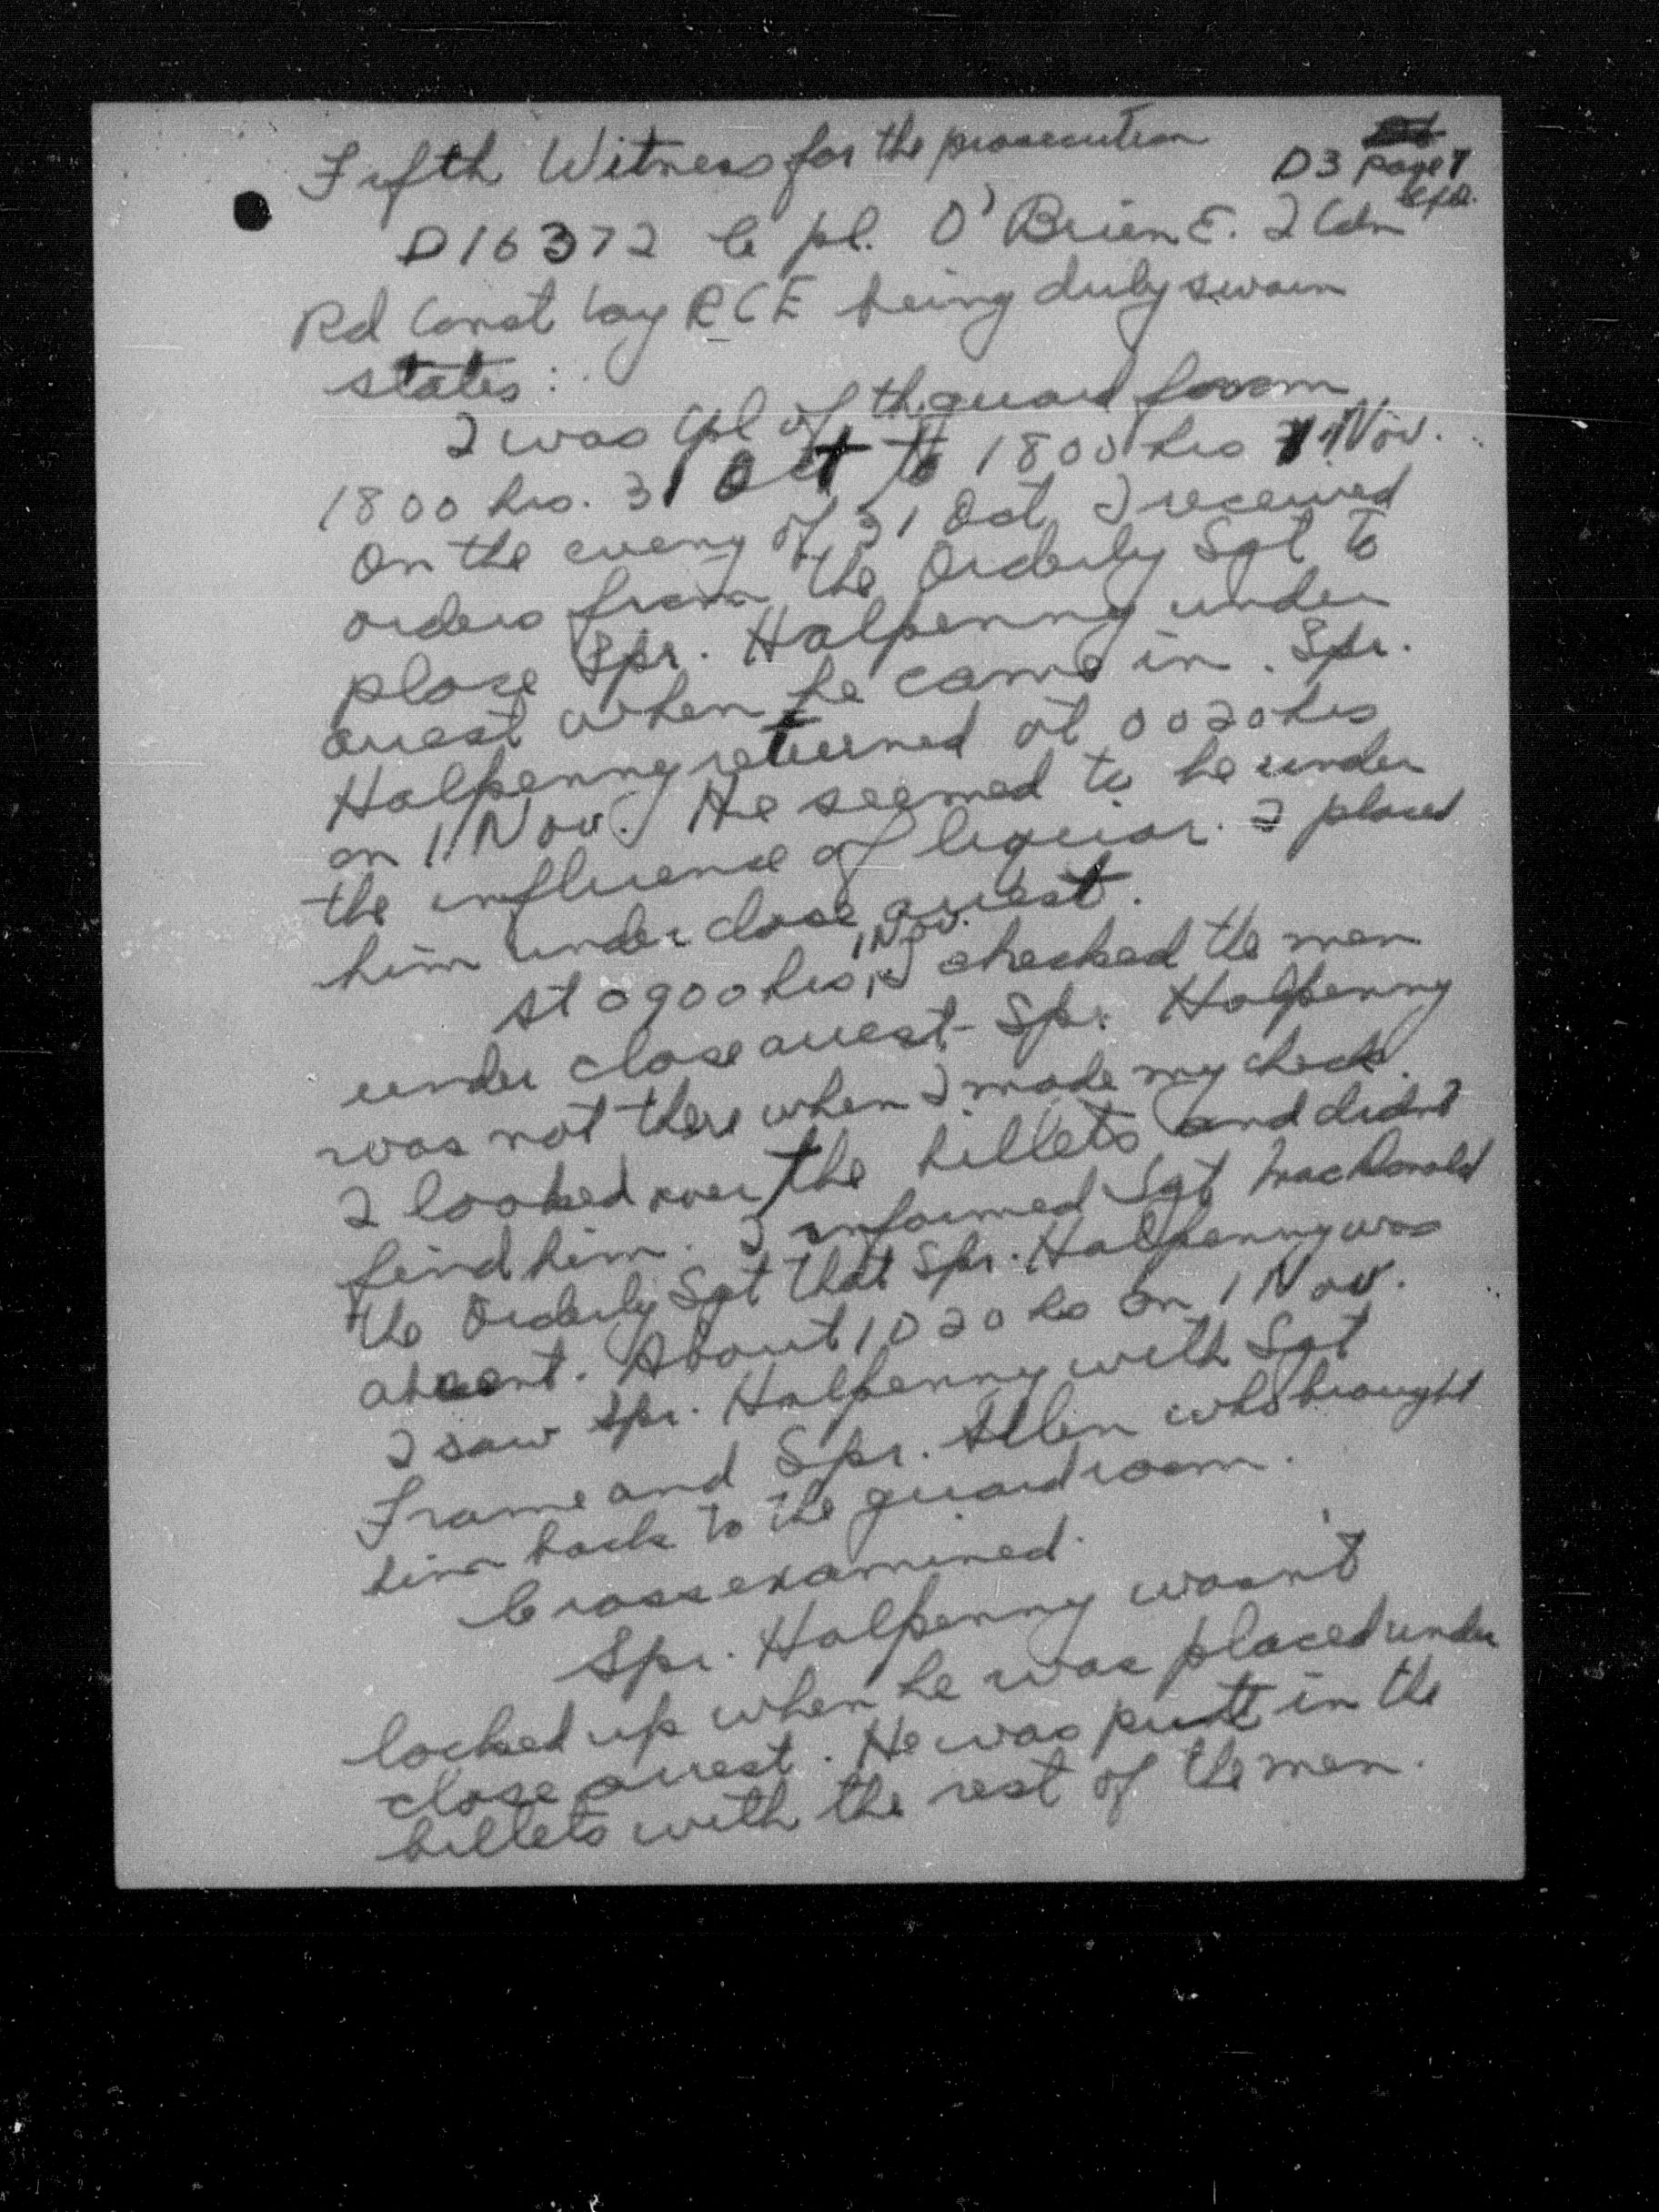 Fifth Witness for the prosecution
D3 page 7
D16372 Cpl. O'Brien E. 2 Cdn
Rd Const Coy RCE being duly sworn
states:
I was Cpl of th guard from
1800 hrs. 31 Oct to 1800 hrs 1 Nov.
On the eveng of 31 Oct I received
orders from the Orderly Sgt to
place Spr. Halpenny under
arrest when he came in. Spr.
Halpenny returned at 0020 hrs
on 1 Nov. He seemed to be under
the influence of liquior. I placed
him under close arrest.
At 0900 hrs, 1 Nov. I checked the men
under close arrest - Spr. Halpenny
was not there when I made my check.
I looked over the billets and didnt
find him. I informed Sgt MacDonald
the Orderly Sgt that Spr. Halpenny was
absent. About 1020 hs on 1 Nov.
I saw Spr. Halpenny with Sgt
Frame and Spr. Allen who brought
him back to the guardroom.
Cross examined.
Spr. Halpenny wasn't
locked up when he was placed under
close arrest. He was putt in the
billets with the rest of the men.